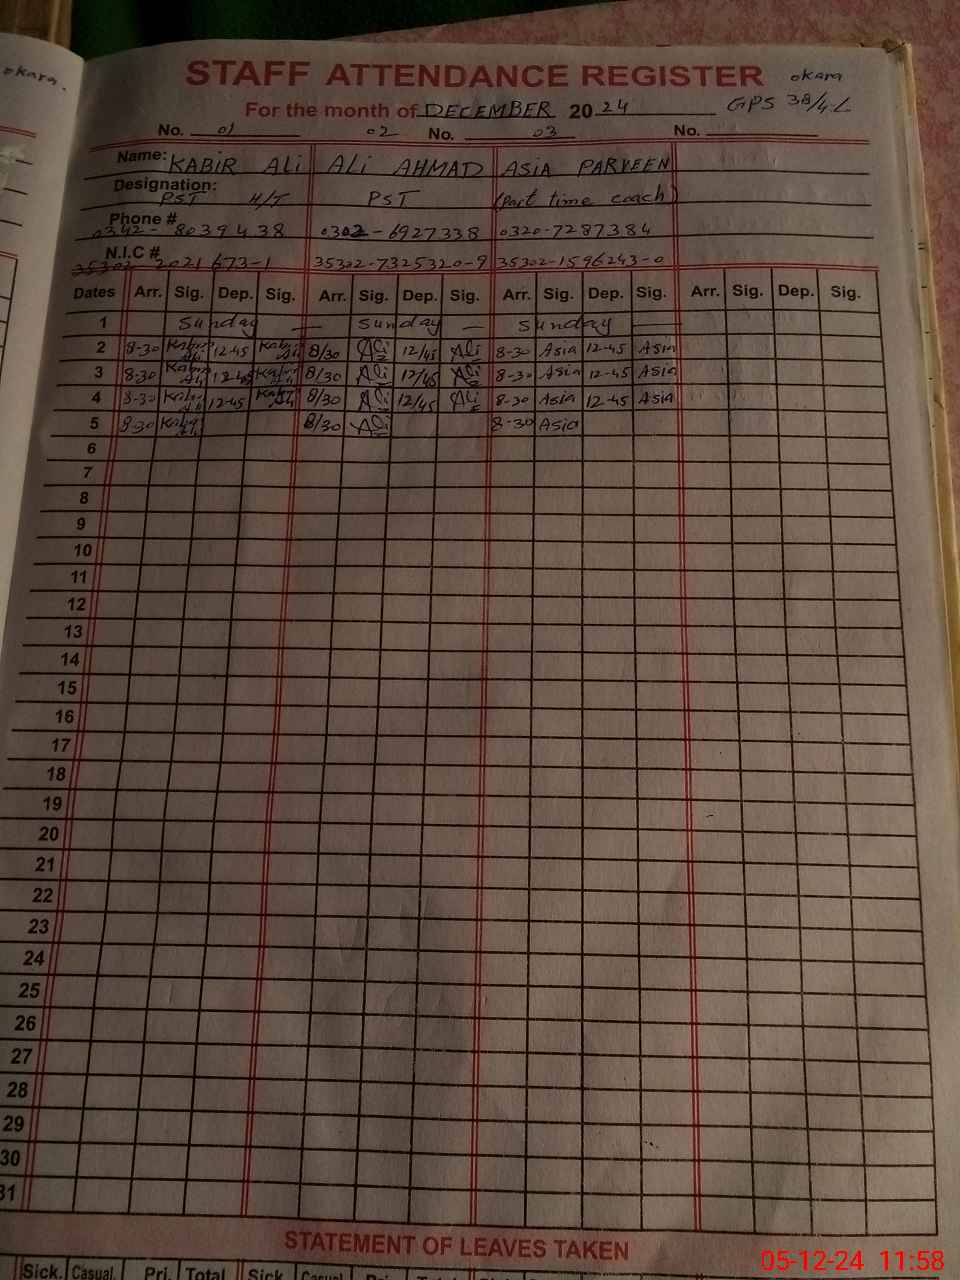 okara.
STAFF ATTENDANCE REGISTER okara
For the month of DECEMBER 2024 GPS 38/4.L
No. 01 02 No. 03 No.
Name: KABIR ALi ALi AHMAD ASIA PARVEEN
Designation: PST H/T PST (Part time coach)
Phone # 0342-8039438 0302-6927338 0320-7287384
N.I.C # 35302 2021673-1 35302-7325320-9 35302-1596243-0
Dates Arr. Sig. Dep. Sig. Arr. Sig. Dep. Sig. Arr. Sig. Dep. Sig. Arr. Sig. Dep. Sig.
1 Sunday — Sunday — Sunday —
2 8-30 Kabir Ali 12-45 Kabir Ali 8/30 Ali 12/45 Ali 8-30 Asia 12-45 Asia
3 8-30 Kabir Ali 12-45 Kabir Ali 8/30 Ali 12/45 Ali 8-30 Asia 12-45 Asia
4 8-30 Kabir Ali 12-45 Kabir Ali 8/30 Ali 12/45 Ali 8-30 Asia 12-45 Asia
5 8-30 Kabir Ali 8/30 Ali 8-30 Asia
6
7
8
9
10
11
12
13
14
15
16
17
18
19
20
21
22
23
24
25
26
27
28
29
30
31
STATEMENT OF LEAVES TAKEN
Sick. Casual. Pri. Total Sick
05-12-24 11:58